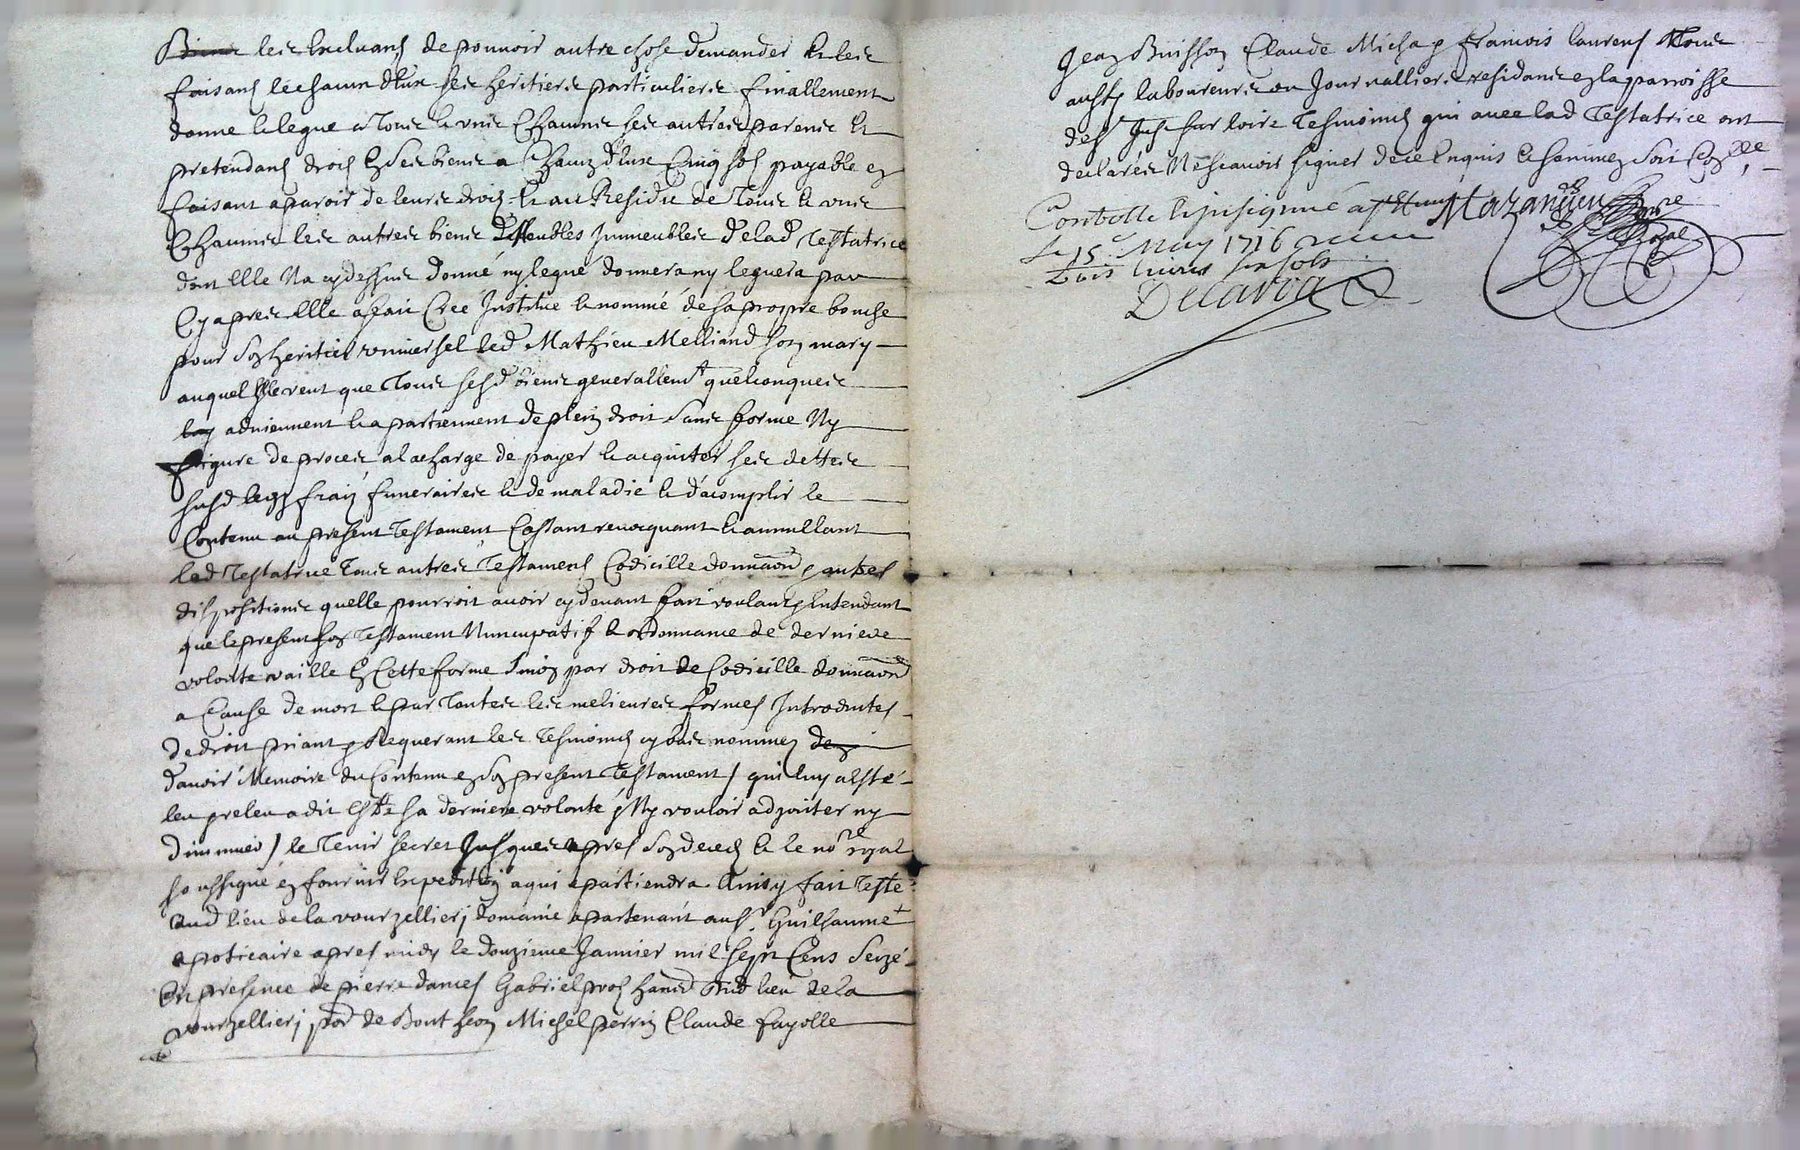 les Excluans de pouvoir autre chose demander Et les
faisans Lechacun d'Eux ses heritiers particuliers finallement
donne & legue a tous & uns Chacuns ses autres parens Et
pretendans drois En ses biens a Chacun d'Eux Cinq sols payable en
faisant aparoir de leurs drois Et au Residu de tous & uns
Chacuns les autres biens Meubles Immeubles de lad Testatrice
dont Elle Na cy dessus donné ny legué donnera ny leguera par
Cy apres Elle a fait Creé Institué & nommé de sa propre bouche
pour son heritier universel led Mathieu Melliand son mary
auquel Elle veut que tous sesd biens generallemt quelconques
adviennent & apartiennent de plein droit sans forme Ny
figure de proces a la charge de payer & acquiter ses dettes
susd legs frais funeraires & de maladie & d'acomplir le
Contenu au present Testament Cassant revocquant & annullant
lad Testatrice tous autres Testamens Codicille donnaon & autres
dispositions quelle pourroit avoir cy devant fait voulant & Entendant
que le present son Testament Nuncupatif & ordonnance de derniere
volonte vaille En Cette forme Sinon par droit de Codicille donnaon
a Cause de mort & par toutes les melieures formes Introduites
de droit priant & Requerant les Tesmoins cy bas nommez
d'avoir Memoire du Contenu en son present Testament / qui luy a esté
leu & releu a dit Estre sa derniere volonté & Ny vouloir adjouter ny
diminuer / le Tenir secret Jusques apres son deces & le nore royal
soussigné en fournir Expedition a qui apartiendra. Ainsy fait
aud lieu de la vourzellieri domaine apartenant au sr. Guilhaumet
apoticaire apres midy le douzieme Janvier mil sept Cens Seize
En presence de pierre dances Gabriel lieu de la
vourzellieri de Bontheon Michel perrin Claude fayolle
Jean Buisson Claude Michap francois laurens Tous
laboureurs ou Journalliers residans en la parroisse
de st Just sur loire Tesmoins qui avec lad Testatrice ont
declarés Ne scavoir signer de ce Enquis & sommez Soit
Controllé & insignué a
Mazancieu
Royal
Le 15e May 1716
trois livres six sols
Delaroa